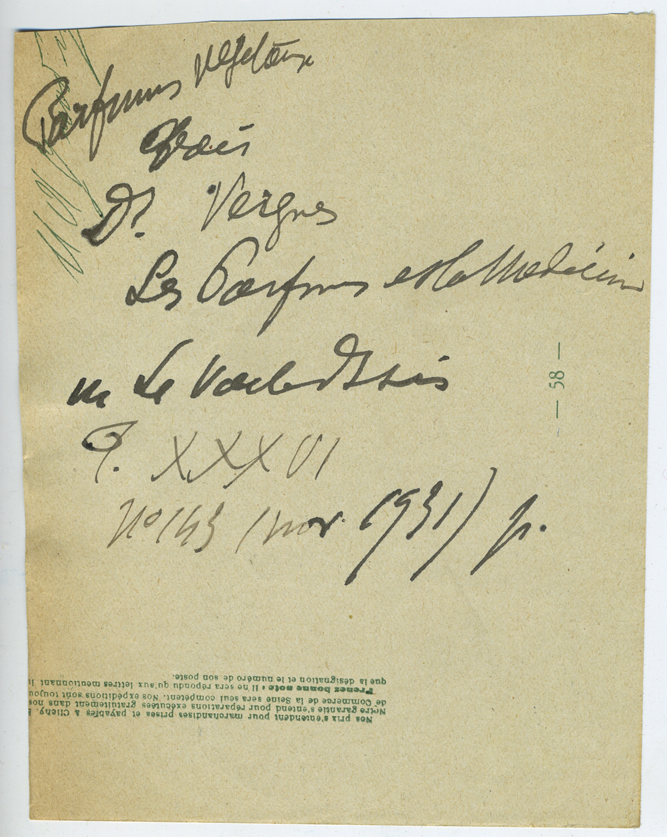 Parfums végétaux
Dr. Vergnes
Les Parfums et la Médecine
in Le Voile d'Isis
T. XXXVI
No 143 (nov. 1931) p.
— 58 —
Nos prix s'entendent pour marchandises prises et payables à Clichy.
Notre garantie s'entend pour réparations exécutées gratuitement dans nos
de Commerce de la Seine sera seul compétent. Nos expéditions sont toujou
Prenez bonne note : Il ne sera répondu qu'aux lettres mentionnant l
que la désignation et le numéro de son poste.